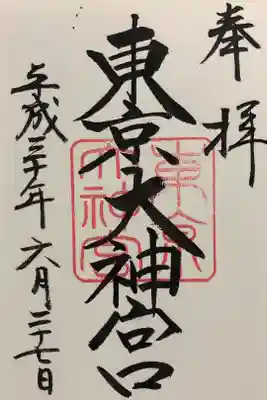 奉拝
東京大神宮
平成三十年六月二十七日
東京大神宮